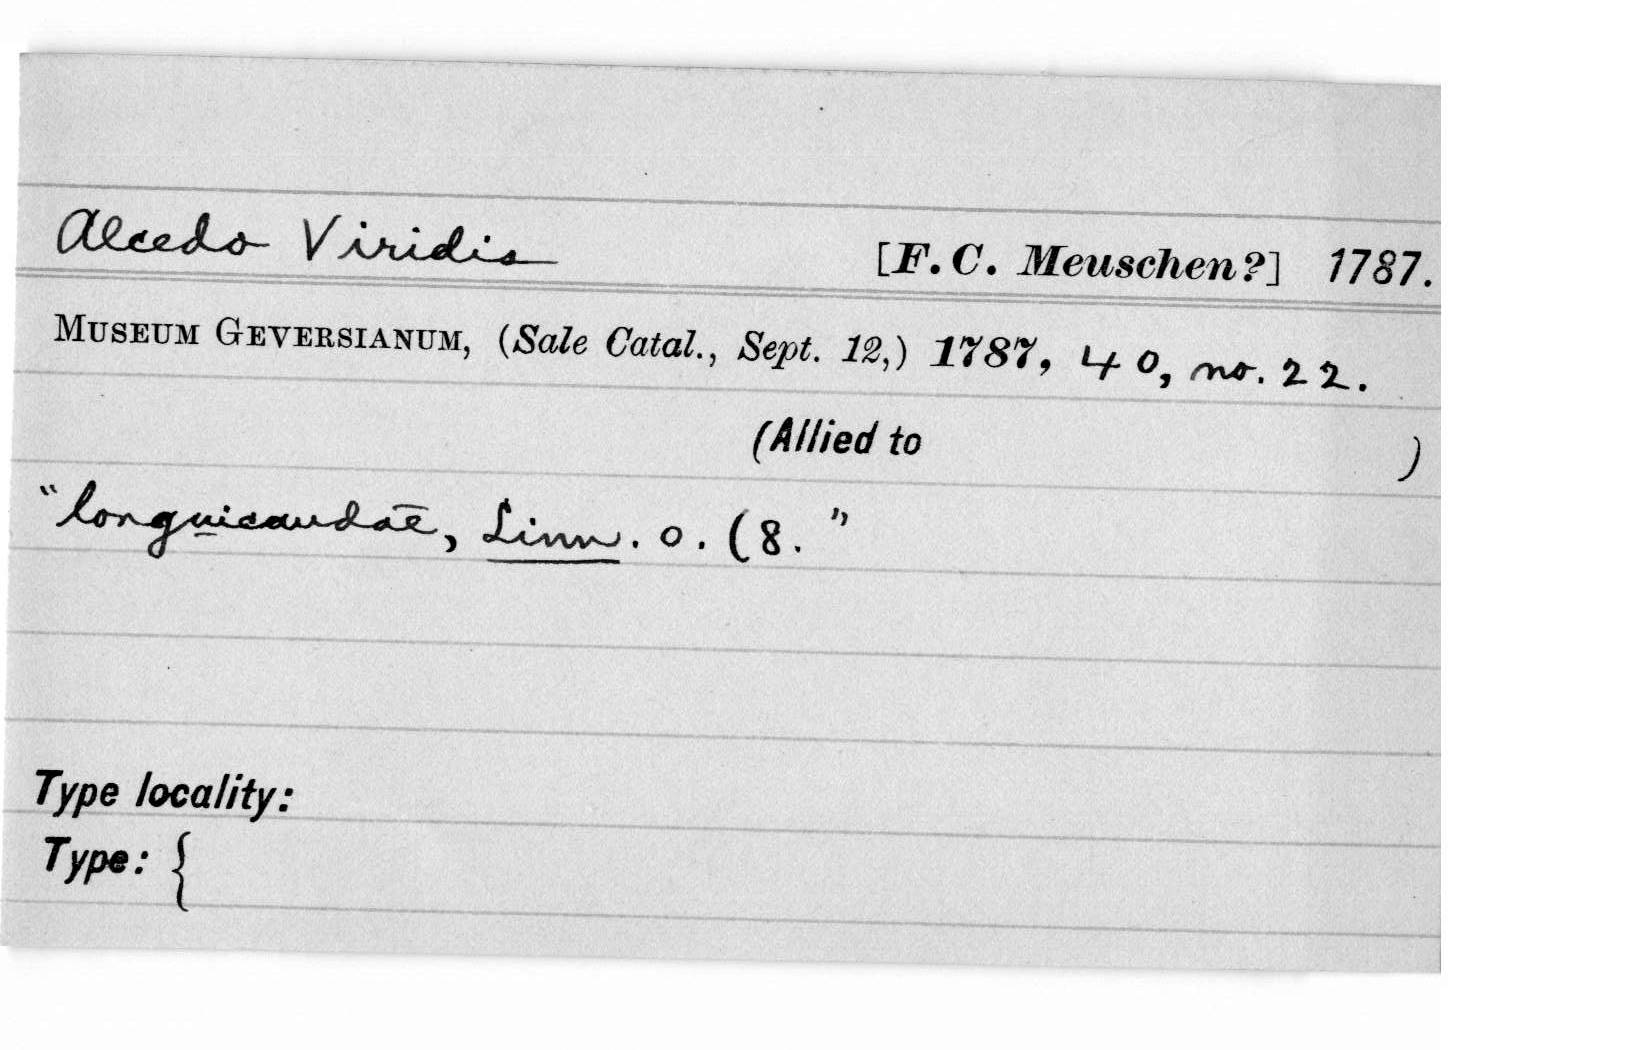 Alcedo Viridis [F. C. Meuschen?] 1787.
MUSEUM GEVERSIANUM, (Sale Catal., Sept. 12,) 1787, 40, no. 22.
(Allied to )
"longuicaudatē, Linn. o. (8."
Type locality:
Type: {